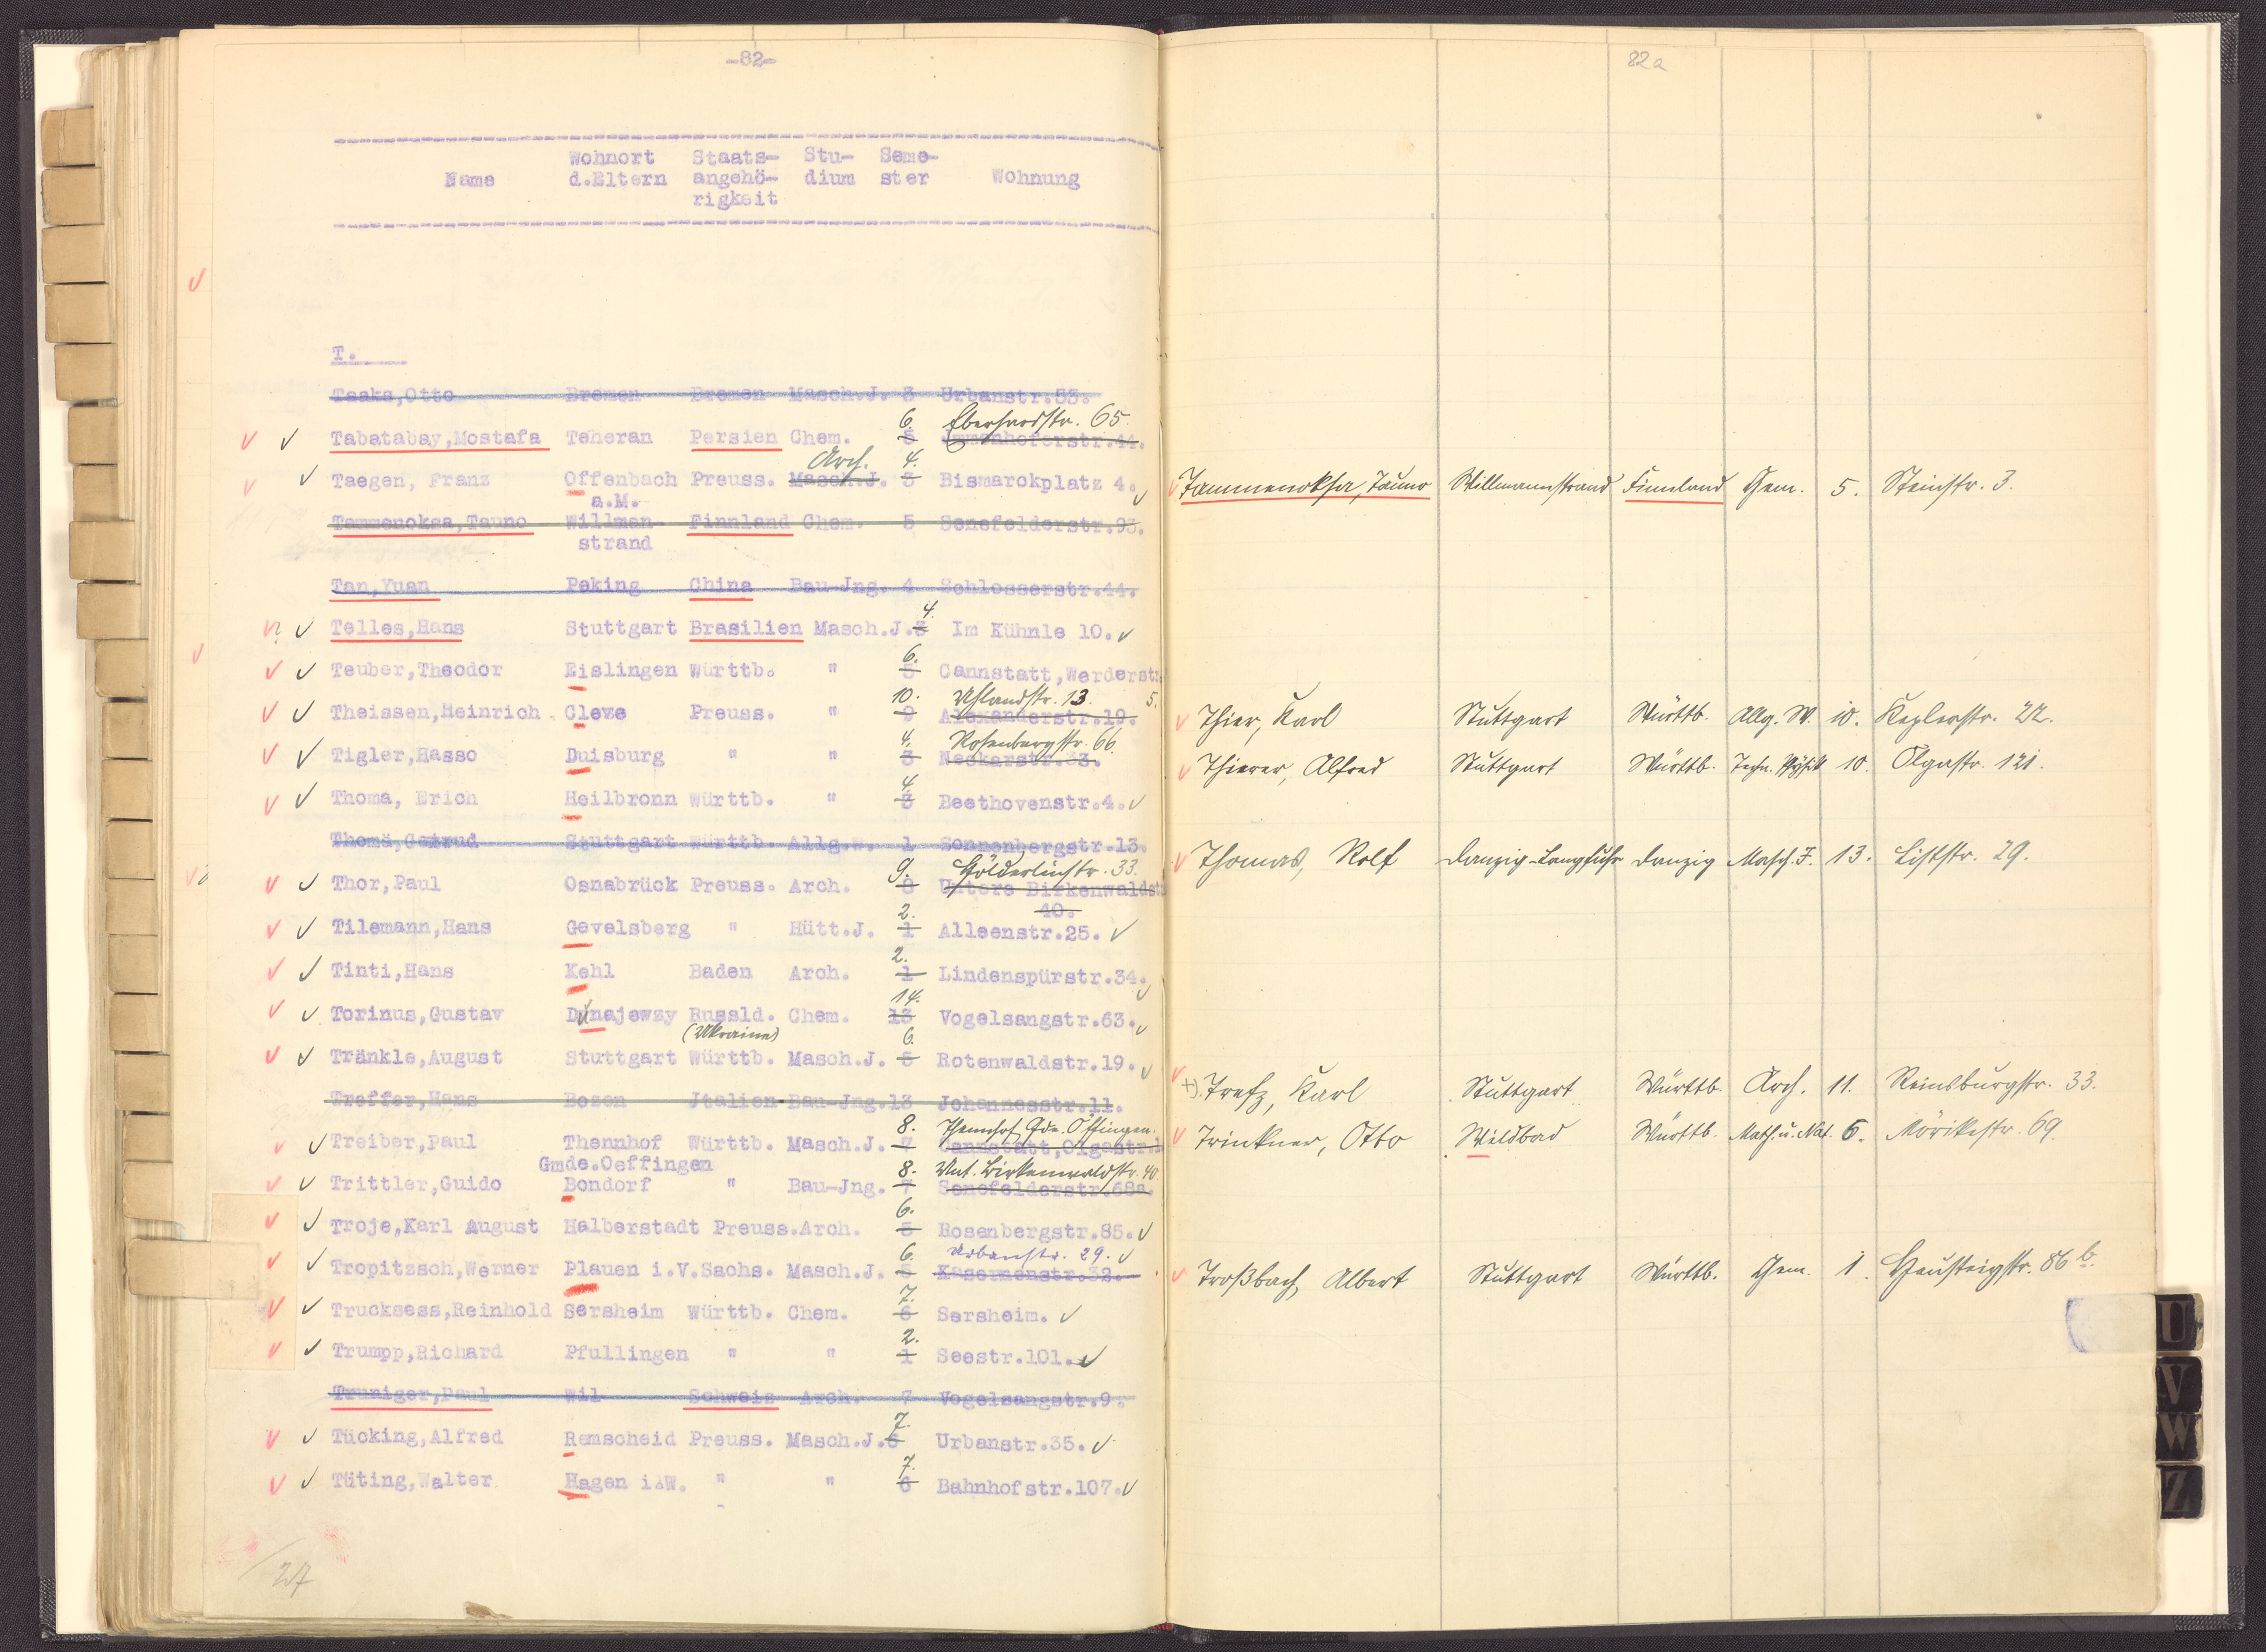 -82-
Name Wohnort d.Eltern Staats-angehö-rigkeit Stu-dium Seme-ster Wohnung
T.
Taaks,Otto Bremen Bremen Masch.J. 3 Urbanstr.53.
6. Eberhardstr. 65.
Tabatabay,Mostafa Teheran Persien Chem. 5 Immenhoferstr.44.
Arch. 4.
Taegen, Franz Offenbach Preuss. Masch.J. 3 Bismarckplatz 4.
a.M.
Tammenoksa,Tauno Willman- Finnland Chem. 5 Senefelderstr.93.
strand
Tan,Yuan Peking China Bau-Jng. 4 Schlosserstr.44.
4.
Telles,Hans Stuttgart Brasilien Masch.J. 3 Im Kühnle 10.
6.
Teuber,Theodor Eislingen Württb. " 5 Cannstatt,Werderstr
10. Uhlandstr. 13. 5.
Theissen,Heinrich Cleve Preuss. " 9 Alexanderstr.19.
4. Rosenbergstr. 66.
Tigler,Hasso Duisburg " " 3 Neckarstr.33.
4.
Thoma, Erich Heilbronn Württb. " 3 Beethovenstr.4.
Thomä,Getrud Stuttgart Württb. Allg.W. 1 Sonnenbergstr.13.
9. Hölderlinstr. 33.
Thor,Paul Osnabrück Preuss. Arch. 8 Untere Birkenwaldst
40.
2.
Tilemann,Hans Gevelsberg " Hütt.J. 1 Alleenstr.25.
2.
Tinti,Hans Kehl Baden Arch. 1 Lindenspürstr.34.
14.
Torinus,Gustav Dunajewzy Russld. Chem. 13 Vogelsangstr.63.
(Ukraine) 6.
Tränkle,August Stuttgart Württb. Masch.J. 5 Rotenwaldstr.19.
Treffer,Hans Bozen Jtalien Bau-Jng.13 Johannesstr.11.
8. Thennhof Gde. Öffingen.
Treiber,Paul Thennhof Württb. Masch.J. 7 Cannstatt,Olgastr.1
Gmde.Oeffingen
8. Unt. Birkenwaldstr. 40
Trittler,Guido Bondorf " Bau-Jng. 7 Senefelderstr.68a.
6.
Troje,Karl August Halberstadt Preuss.Arch. 5 Rosenbergstr.85.
6. Urbanstr. 29.
Tropitzsch,Werner Plauen i.V.Sachs. Masch.J. 5 Kasernenstr.32.
7.
Trucksess,Reinhold Sersheim Württb. Chem. 6 Sersheim.
2.
Trumpp,Richard Pfullingen " " 1 Seestr.101.
Truniger,Paul Wil Schweiz Arch. 7 Vogelsangstr.9.
7.
Tücking,Alfred Remscheid Preuss. Masch.J. 6 Urbanstr.35.
7.
Tüting,Walter Hagen i.W. " " 6 Bahnhofstr.107.
27
82a
Tammenoksa, Tauno Willmannstrand Finnland Chem. 5. Steinstr. 3.
Thier, Karl Stuttgart Württb. Allg. W. 10. Keplerstr. 22.
Thierer, Alfred Stuttgart Württb. Techn. Physik 10. Olgastr. 121.
Thomas, Rolf Danzig-Langfuhr Danzig Masch.J. 13. Liststr. 29.
+). Trefz, Karl Stuttgart Württb. Arch. 11. Reinsburgstr. 33.
Trinkner, Otto Wildbad Württb. Math. u. Nat. 6. Mörikestr. 69.
Troßbach, Albert Stuttgart Württb. Chem. 1. Hausteigstr. 86 b.
U
V
W
Z